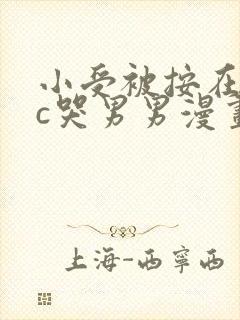 小受被按在
c哭男男漫畫
上海-西寧西